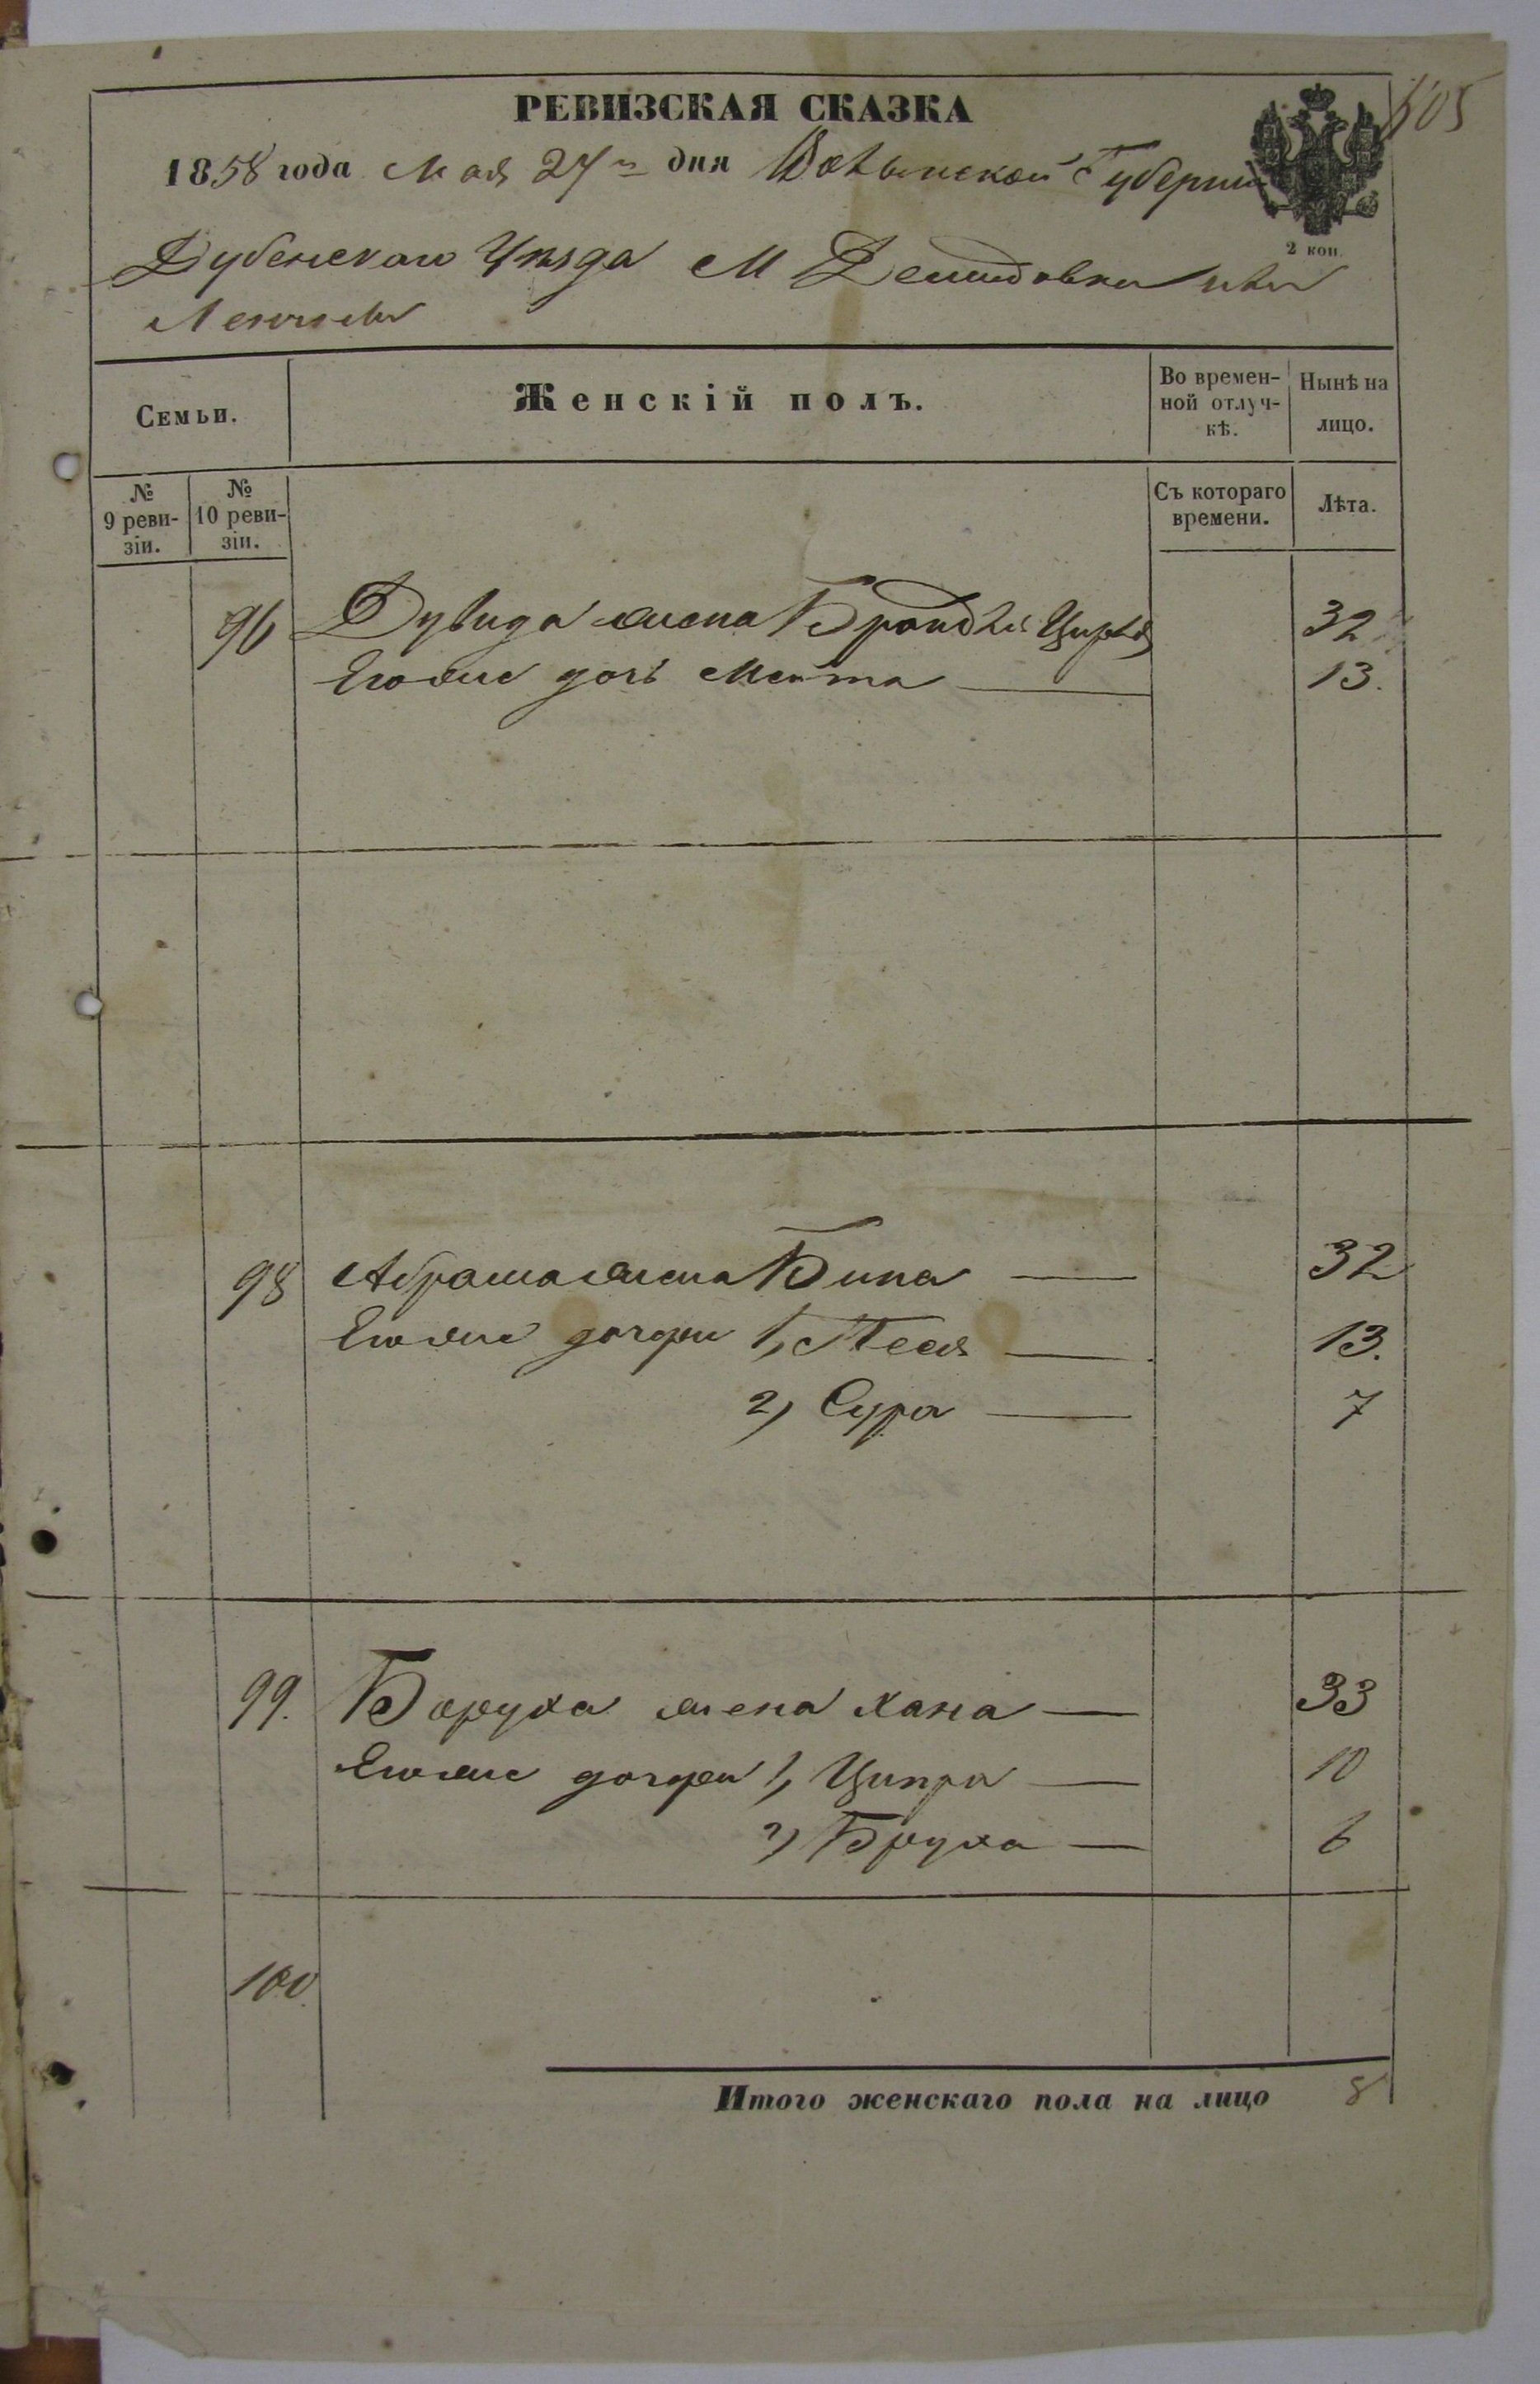 605
РЕВИЗСКАЯ СКАЗКА
1858 года Мая 27 дня Волынской Губернии
2 коп.
Дубенскаго Уѣзда М Демидовки или
Семьи.
Женскій полъ.
Во времен-
ной отлуч-
кѣ.
Нынѣ на
лицо.
№
9 реви-
зіи.
№
10 реви-
зіи.
Съ котораго
времени.
Лѣта.
96 Дувида жена Брандля Цирля 32
Егоже дочь 13.
98 Абрама жена Бина 32
Егоже дочери 1, Песя 13.
2, Сура 7
99. Боруха жена Хана 33
Егоже дочери 1, Ципра 10
2, Бруха 6
100.
Итого женскаго пола на лицо 8